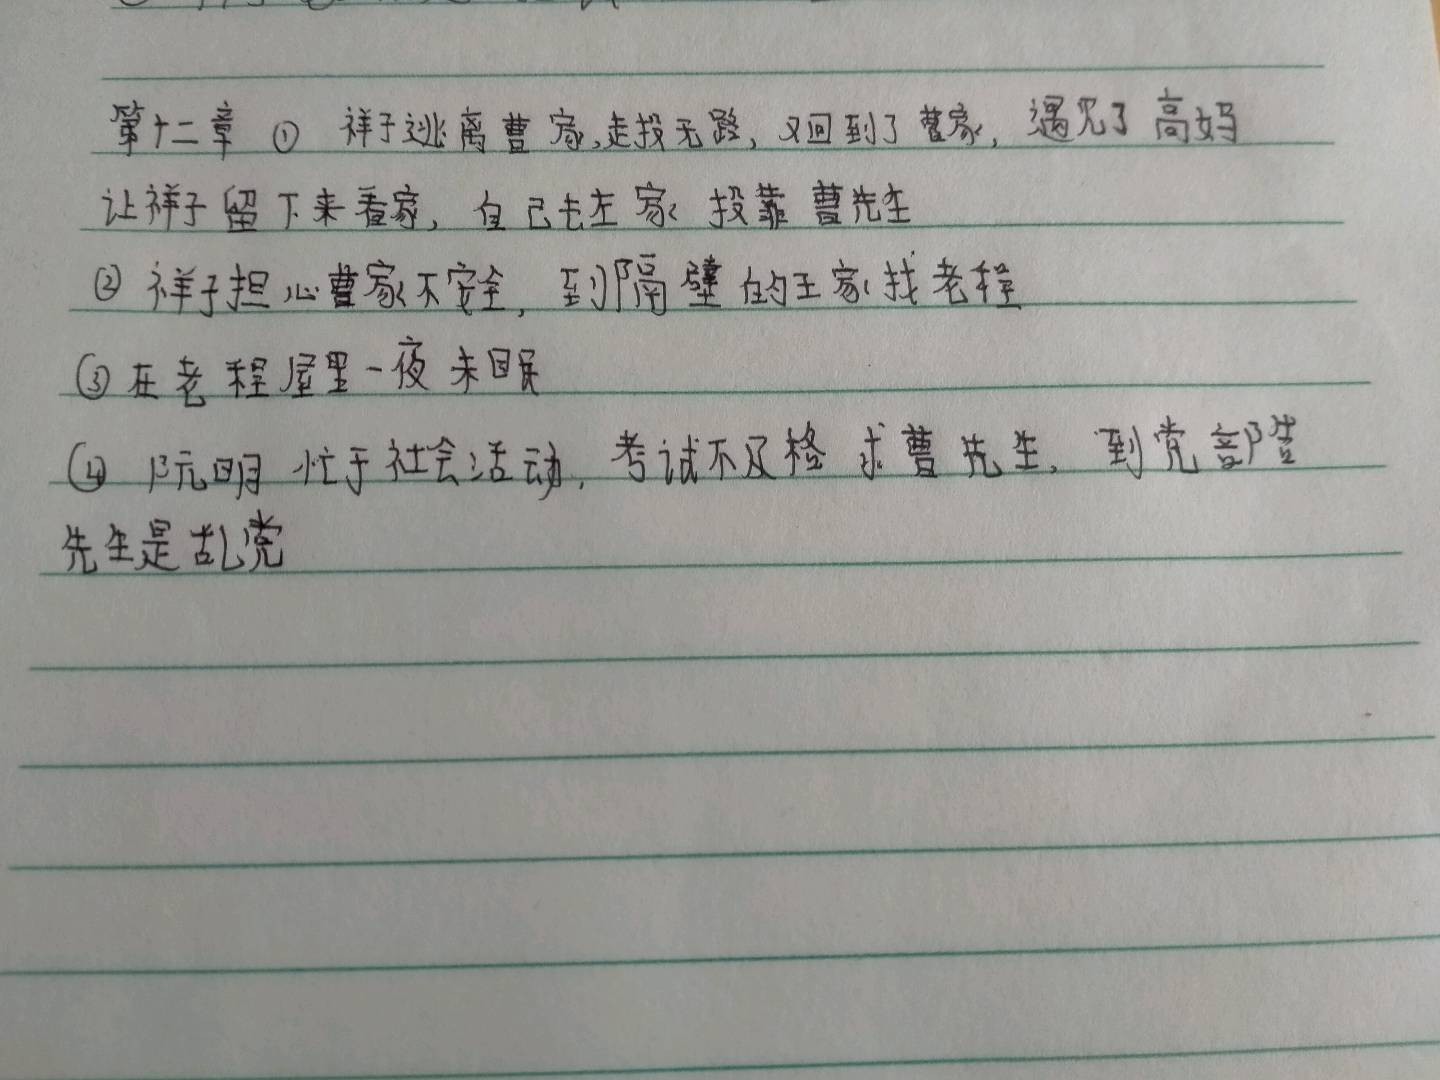 第十二章 ① 祥子逃离曹家,走投无路,又回到了曹家,遇见了高妈
让祥子留下来看家,自己去左家投靠曹先生
② 祥子担心曹家不安全,到隔壁的王家找老程
③ 在老程屋里一夜未眠
④ 阮明忙于社会活动,考试不及格求曹先生,到党部告
先生是乱党